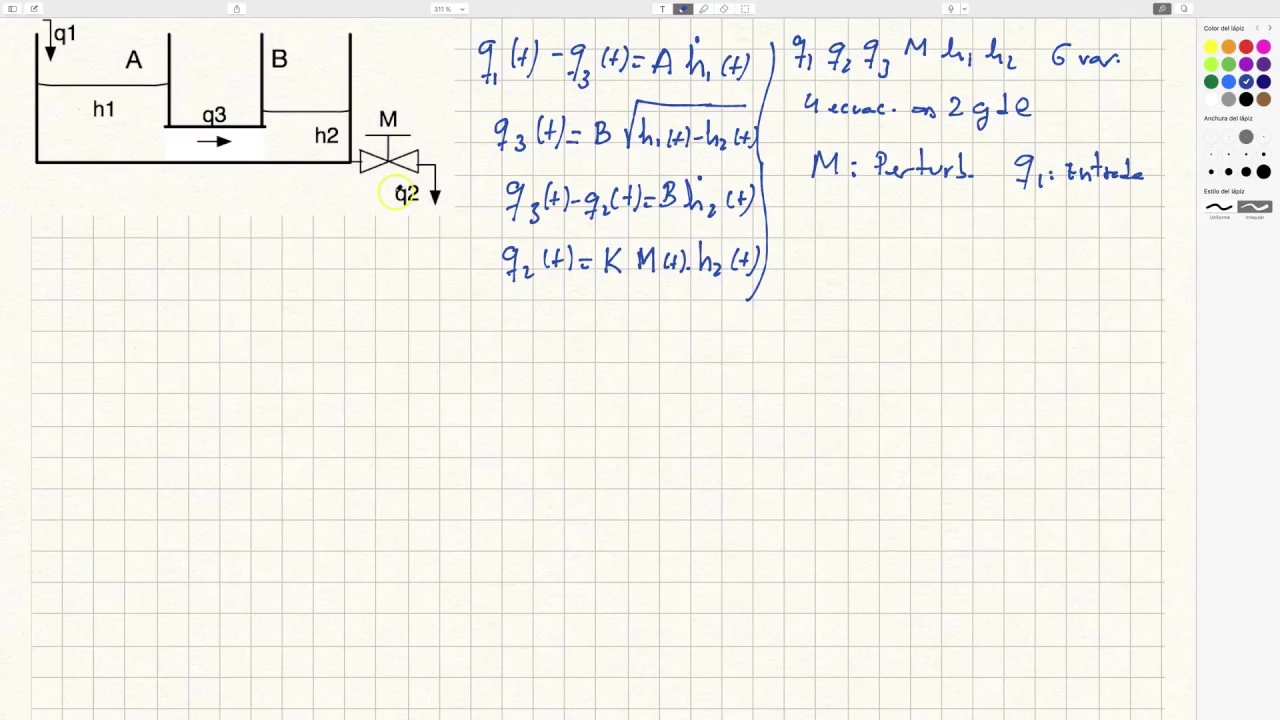 311 %
T
q1
A
B
h1
q3
h2
M
q2
q₁(t) - q₃(t) = A ḣ₁(t)
q₃(t) = B √h₁(t)-h₂(t)
q₃(t) - q₂(t) = B ḣ₂(t)
q₂(t) = K M(t). h₂(t)
q₁ q₂ q₃ M h₁ h₂ 6 var.
4 ecuac. 2 g d l
M: Perturb. q₁: Entrada
Color del lápiz
Anchura del lápiz
Estilo del lápiz
Uniforme Irregular